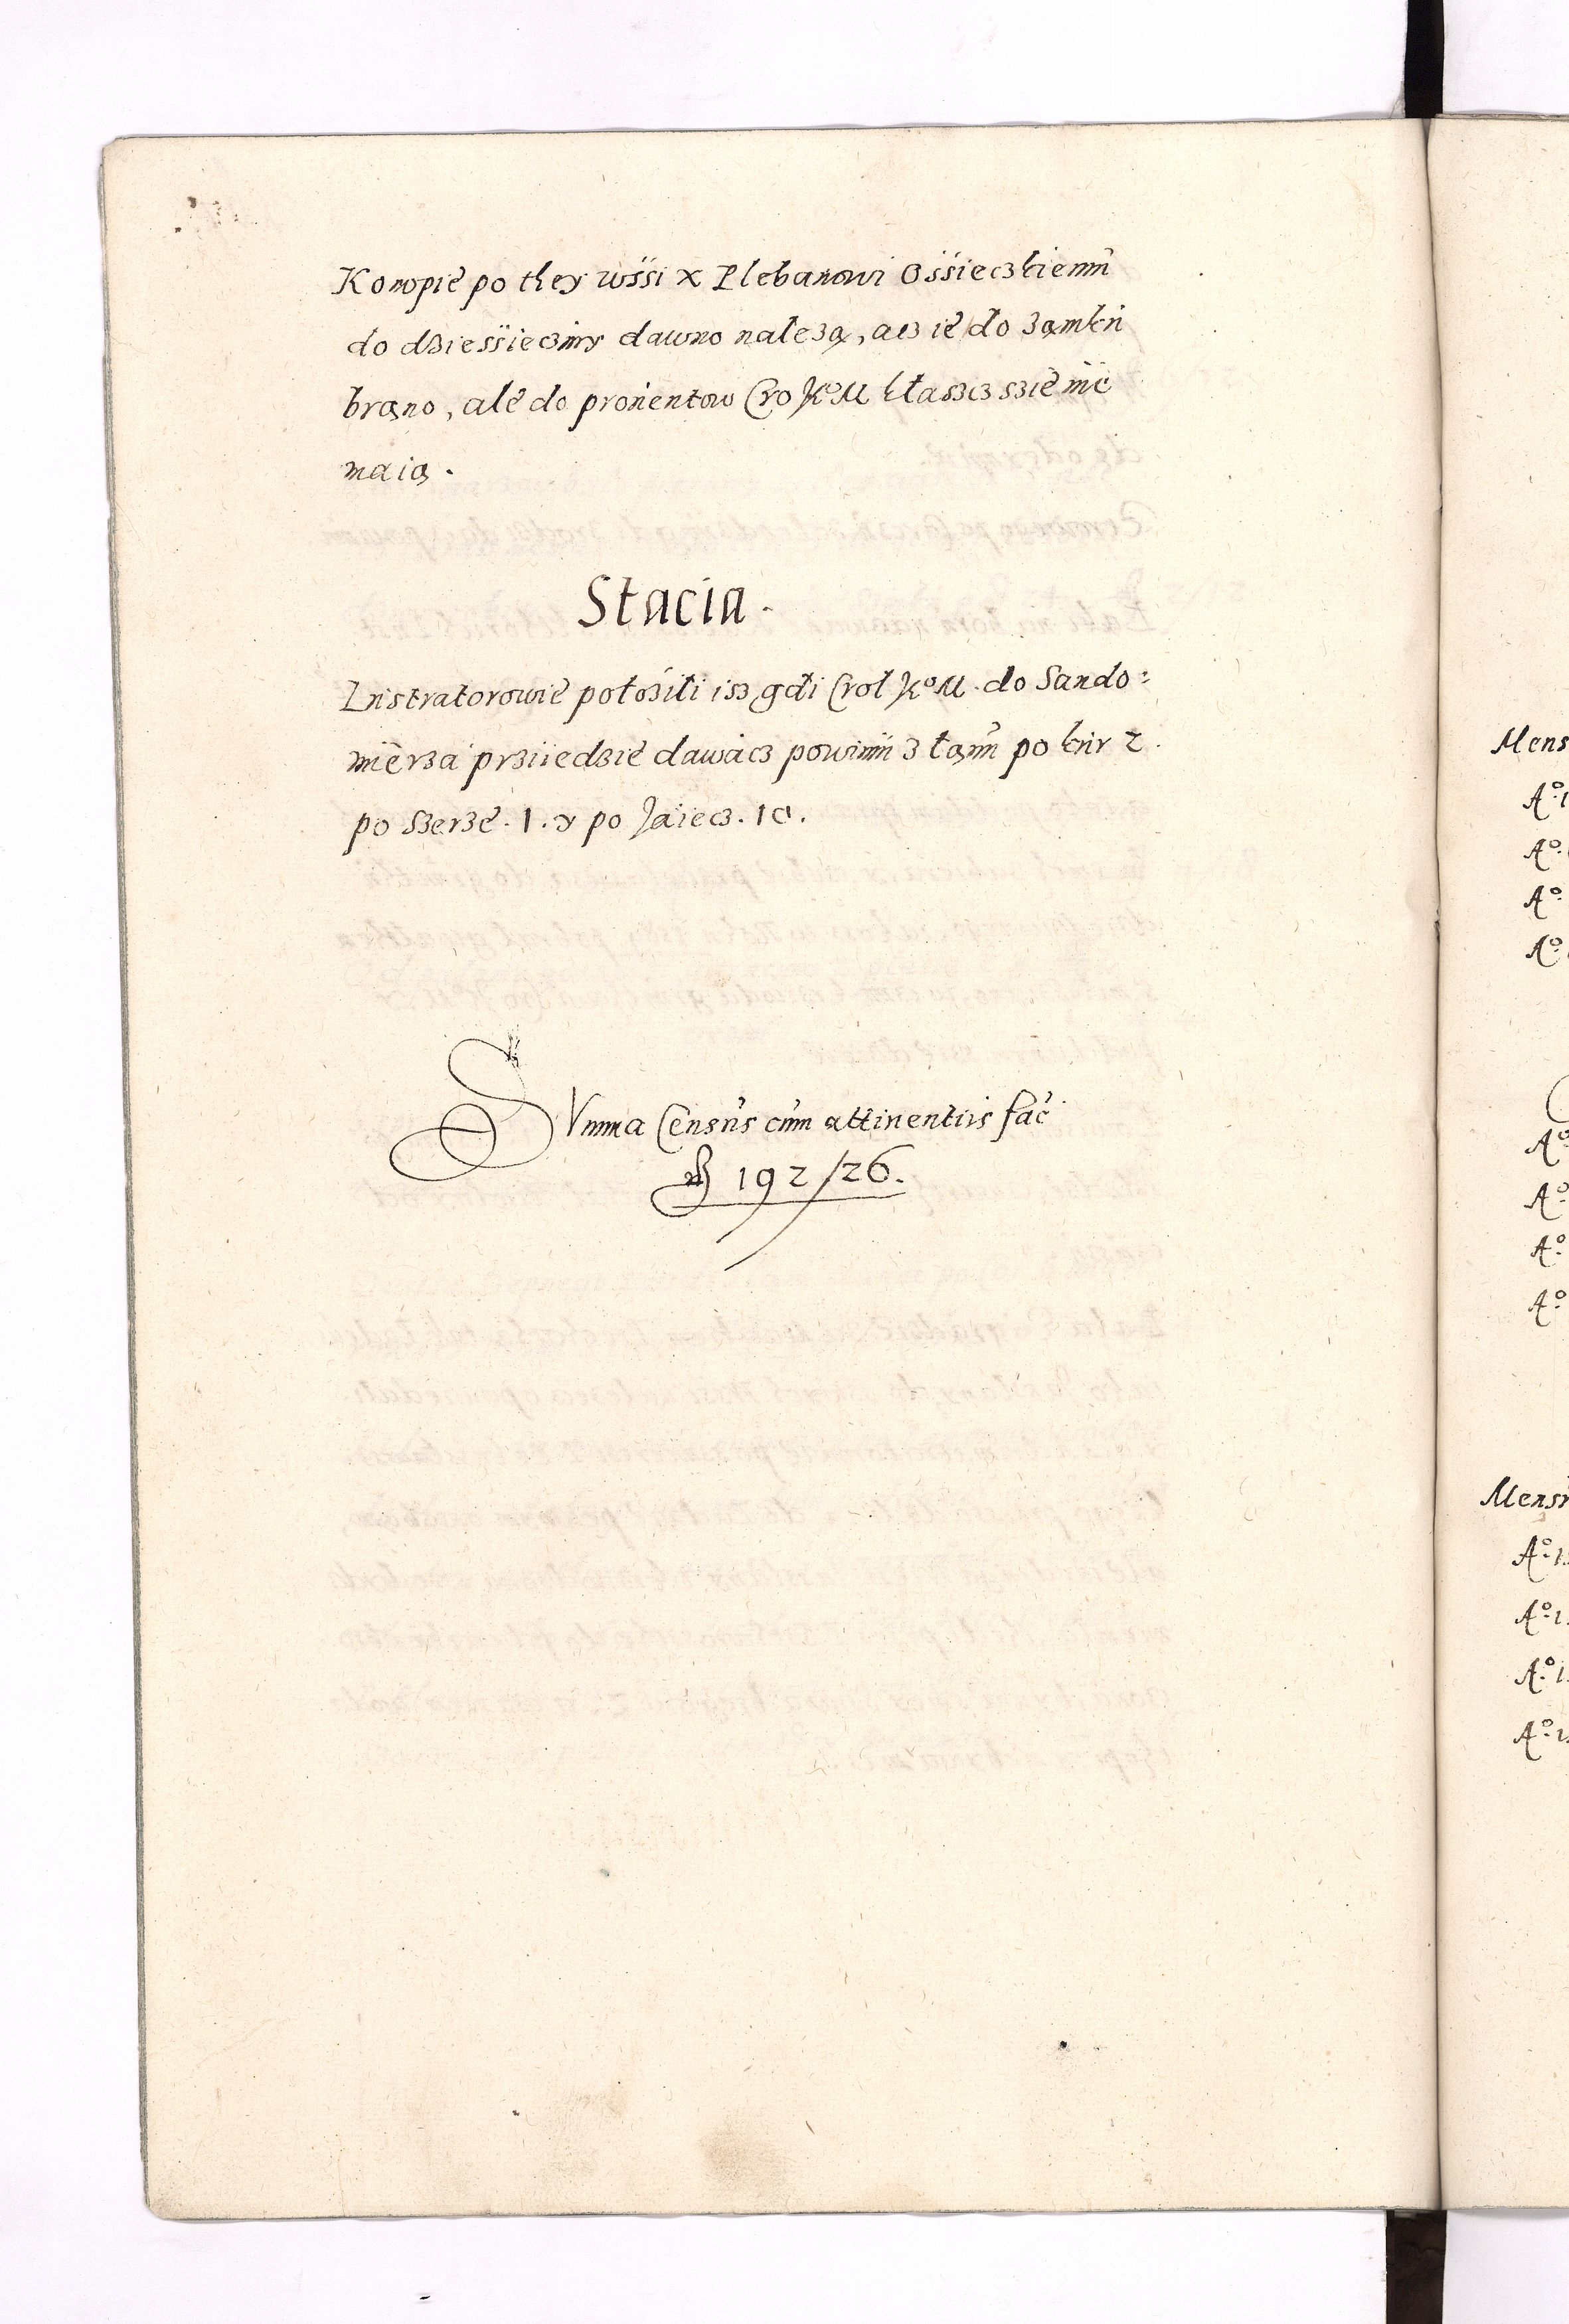 Konopie po they wssi X Plebanowi Ossieczkiemu
do dziessieciny dawno należą, acz ie do zamku
brano, ale do prouentow Cro Kº M kłaszcz szie nie
maią.
Stacia.
Lustratorowie położili isz gdi Crol Kº M. do Sando:
mierza prziiedzie dawacz powinni z łanu po kur 2.
po Szerze. 1. y po Jaiecz. 10.
Summa Census cum attinentiis fac
192/26.
Mens
Aº 1
Aº
Aº
Aº
Aº
Aº
Aº
Aº
Mens
Aº 1
Aº 1
Aº 1
Aº 1